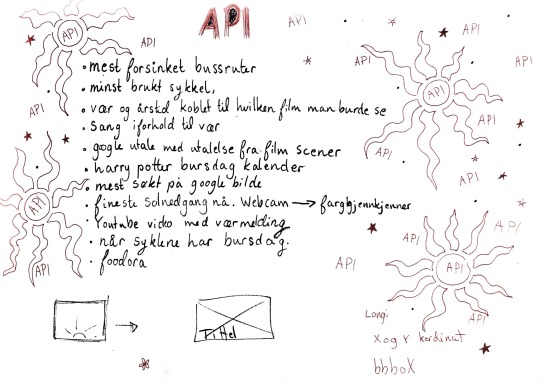 API
API
API
API
API
API
• mest forsinket bussruter
• minst brukt sykkel,
• vær og årstid koblet til hvilken film man burde se
• Sang iforhold til vær
• google utale med utalelse fra film scener
• harry potter bursdag kalender
• mest søkt på google bilde
• fineste solnedgang nå. Webcam → fargegjennkjenner
• Youtube video med værmelding
• når syklene har bursdag.
• foodora
API
API
API
API
API
API
API
API
API
API
API
API
API
Tittel
Longi
X og Y kordinat
bbboX